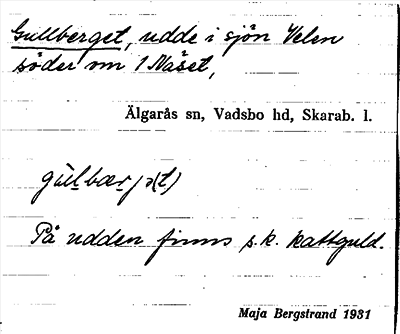 Gullberget, udde i sjön Velen
söder om 1 Näset,
Älgarås sn, Vadsbo hd, Skarab. l.
På udden finns s.k. kattguld.
Maja Bergstrand 1931